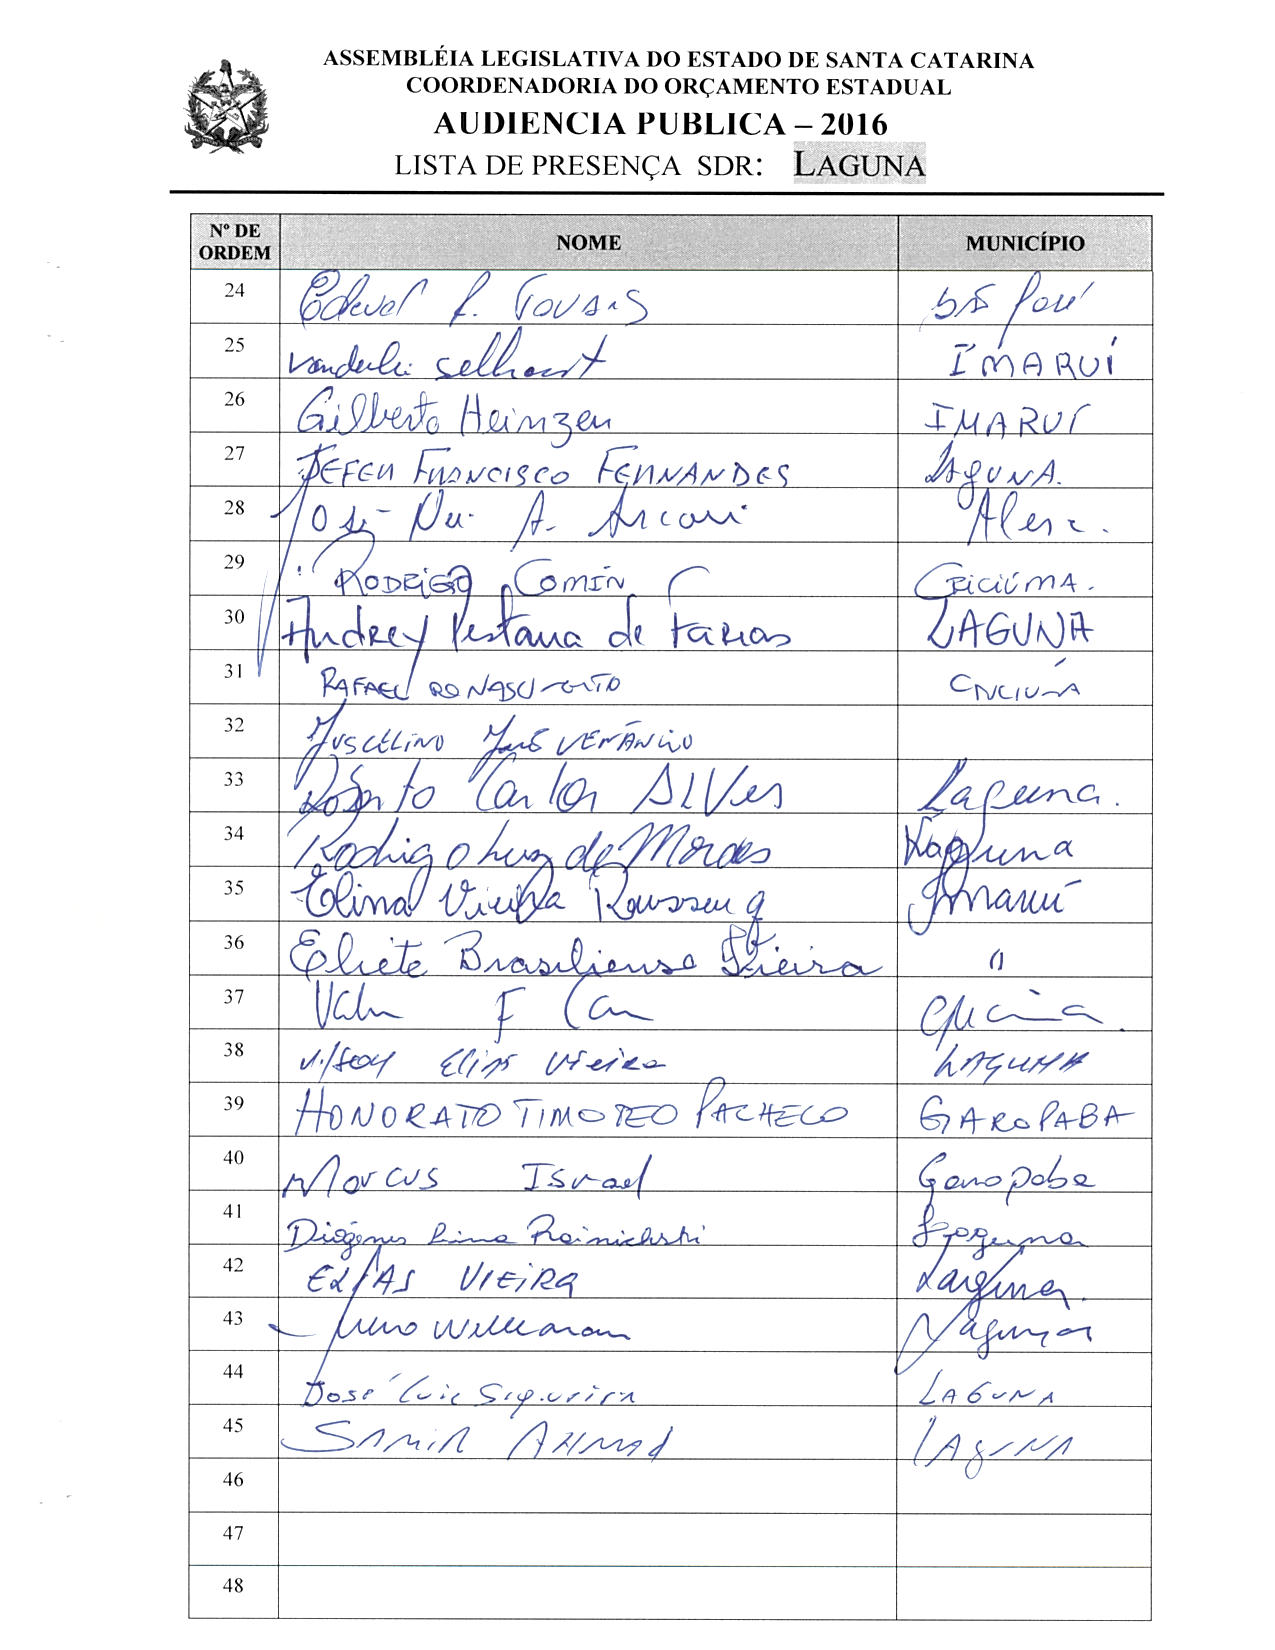 ASSEMBLÉIA LEGISLATIVA DO ESTADO DE SANTA CATARINA
COORDENADORIA DO ORÇAMENTO ESTADUAL
AUDIENCIA PUBLICA – 2016
LISTA DE PRESENÇA SDR: LAGUNA
Nº DE ORDEM NOME MUNICÍPIO
24 José
25 Vanderlei Selhorst IMARUÍ
26 Gilberto Heinzen IMARUÍ
27 FRANCISCO FERNANDES LAGUNA.
28 José A. Alesc.
29 RODRIGO COMIN CRICIÚMA.
30 Andrey Pestana de Farias LAGUNA
31 RAFAEL DO NASCIMENTO CRICIÚMA
32 JUSCELINO José VENÂNCIO
33 Roberto Carlos ALVes Laguna.
34 Rodrigo Luz de Moraes Laguna
35 Elina Vieira Imaruí
36 Eliete Brasiliense Vieira "
37 F
38 Elias Vieira LAGUNA
39 HONORATO TIMOTEO PACHECO GAROPABA
40 Marcus Israel Garopaba
41 Diógenes Lima Laguna
42 ELIAS VIEIRA Laguna.
43 Laguna
44 José Luiz Siqueira LAGUNA
45 SAMIR AHMAD LAGUNA
46
47
48